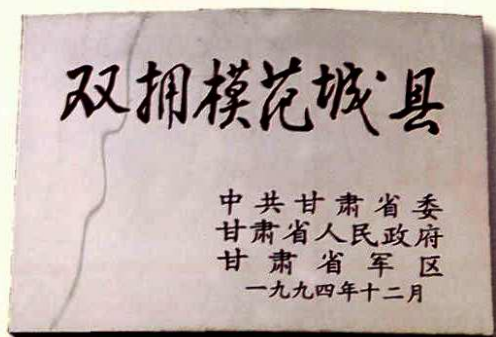 双拥模范城县
中共甘肃省委
甘肃省人民政府
甘肃省军区
一九九四年十二月